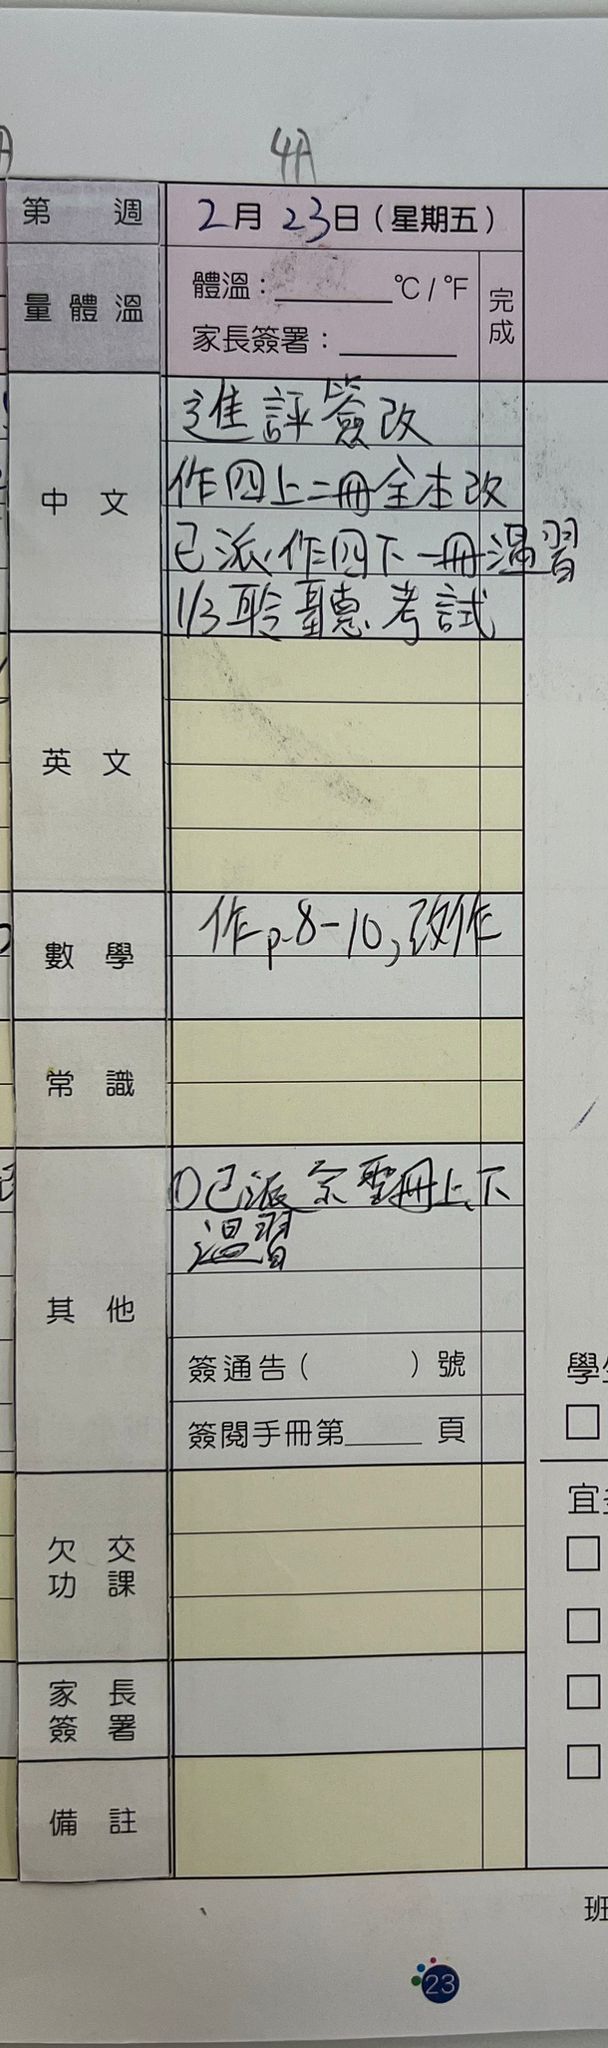 4A
第 週
2月23日(星期五)
量體溫
體溫:______℃/℉
完成
家長簽署:______
中文
進評簽改
作四上二冊全本改
已派作四下一冊溫習
1/3聆聽考試
英文
數學
作p.8-10,改作
常識
其他
①已派宗聖冊上、下
溫習
簽通告( )號
簽閱手冊第____頁
欠交
功課
家長
簽署
備註
學
宜
班
23